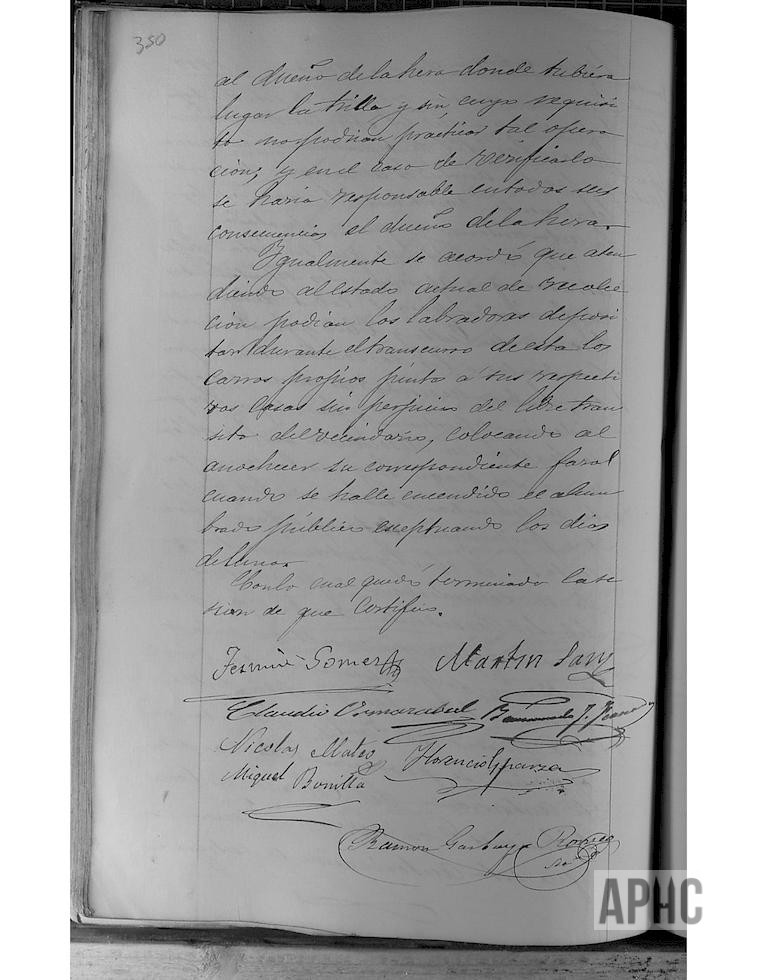 350
al dueño de la hera donde tubiera
lugar la trilla y sin cuyo requisi
to no podrian practicar tal opera
cion, y en el caso de verificarlo
se haria responsable en todas sus
consecuencias el dueño de la hera.
Igualmente se acordó que aten
diendo al Estado actual de recolec
cion podian los labradores deposi
tar durante el transcurso de esta los
carros propios junto á sus respecti
vos casas sin perjuicio del libre tran
sito del vecindario, colocando al
anochecer su correspondiente farol
cuando se halle encendido el alum
brado público exceptuando los dias
de luna.
Con lo cual quedó terminada la se
sion de que Certifico.
Fermin Gomez Martin Sanz
Claudio
Nicolas Mateo Florencio Esparza
Miguel Bonilla
Ramon Garbayo
APHC